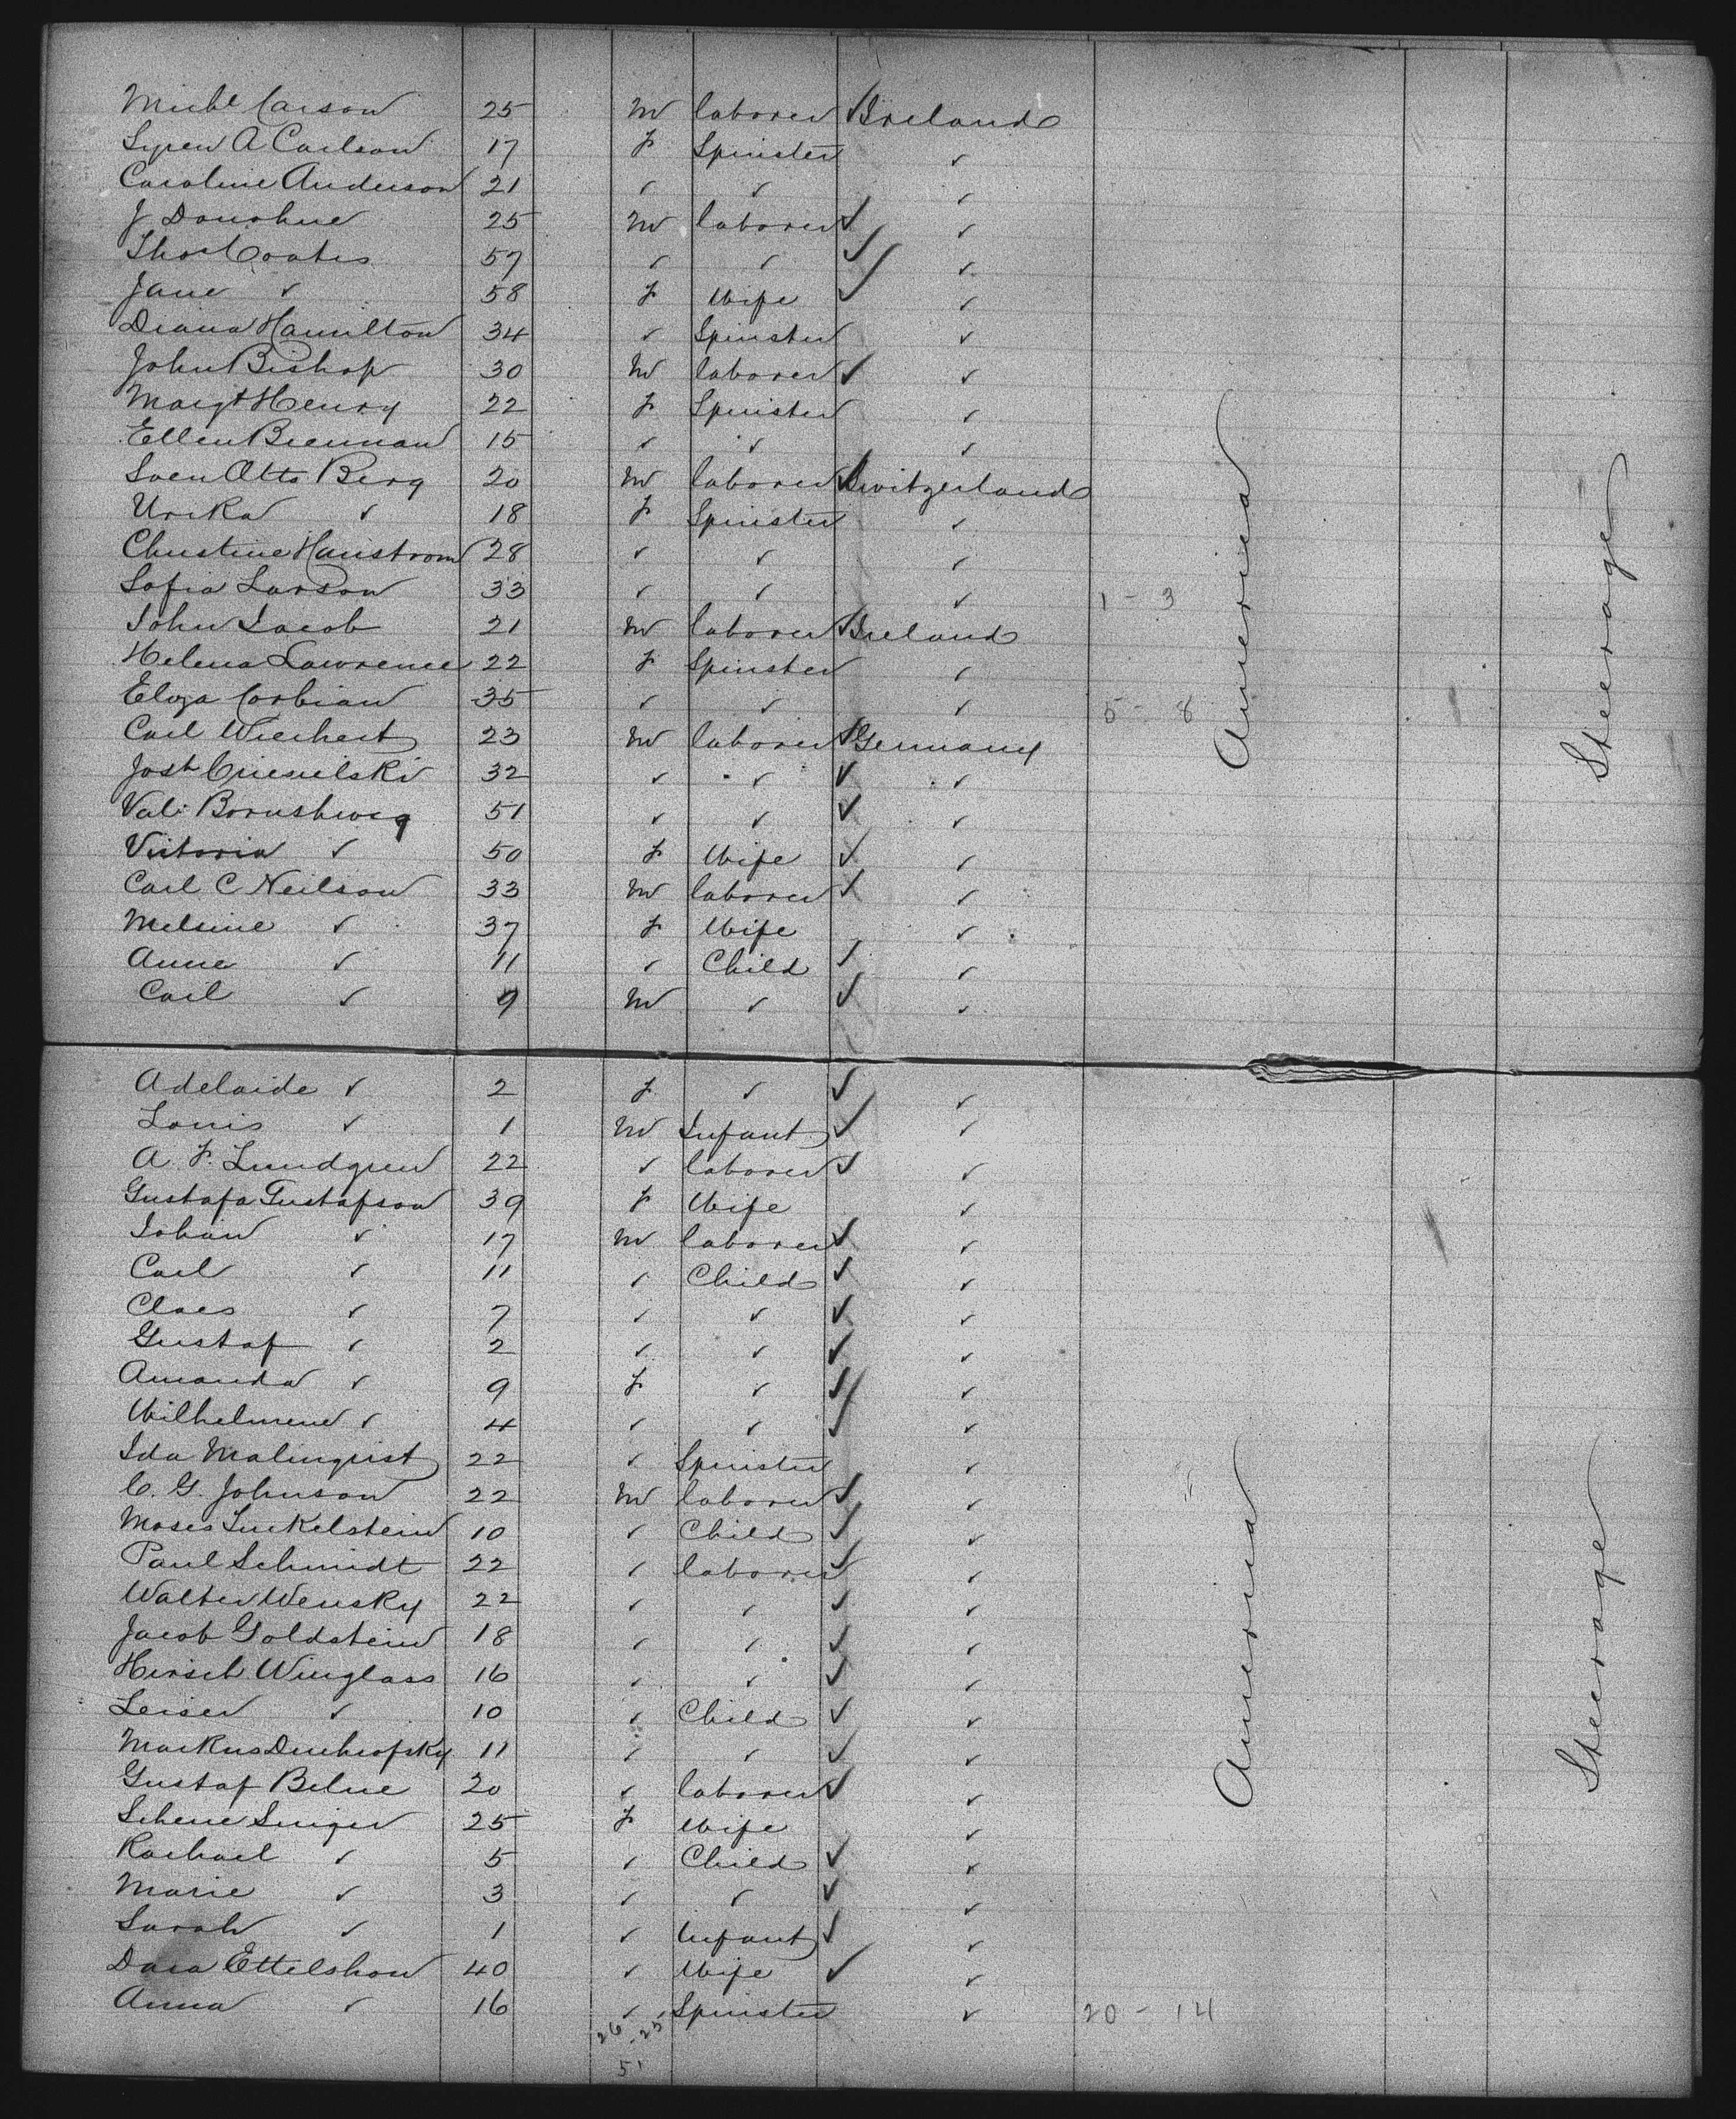 Michl Carson 25 m laborer Ireland
Syren A Carlson 17 f Spinster ✓
Caroline Anderson 21 ✓ ✓ ✓
J Donohue 25 m laborer ✓ ✓
Thos Coates 57 ✓ ✓ ✓ ✓
Jane ✓ 58 f Wife ✓ ✓
Diana Hamilton 34 ✓ Spinster ✓
John Bishop 30 m laborer ✓ ✓
Margt Henry 22 f Spinster ✓
Ellen Brennan 15 ✓ ✓ ✓
Sven Otto Berg 20 m laborer Switzerland
Urika ✓ 18 f Spinster ✓
Christine Hanstrom 28 ✓ ✓ ✓
Sofia Larson 33 ✓ ✓ ✓ 1 - 3
John Jacob 21 m laborer Ireland
Helena Lawrence 22 f Spinster ✓
Eliza Corbian 35 ✓ ✓ ✓ 5 - 8
Carl Wiechert 23 m laborer Germany
Josh 32 ✓ ✓ ✓ ✓
Val: Bornshweg 51 ✓ ✓ ✓ ✓
Victoria ✓ 50 f Wife ✓ ✓
Carl C Neilson 33 m laborer ✓ ✓
Melsine ✓ 37 f Wife ✓
Anne ✓ 11 ✓ Child ✓ ✓
Carl ✓ 9 m ✓ ✓ ✓
America
Steerage
Adelaide ✓ 2 f ✓ ✓ ✓
Louis ✓ 1 m Infant ✓ ✓
A. F. Lundgren 22 ✓ laborer ✓ ✓
Gustafa Gustafson 39 f Wife ✓
Johan ✓ 17 m laborer ✓ ✓
Carl ✓ 11 ✓ Child ✓ ✓
Claes ✓ 7 ✓ ✓ ✓ ✓
Gustaf ✓ 2 ✓ ✓ ✓ ✓
Amanda ✓ 9 f ✓ ✓ ✓
Wilhelmene ✓ 4 ✓ ✓ ✓ ✓
Ida Malmquist 22 ✓ Spinster ✓
C. G. Johnson 22 m laborer ✓ ✓
Moses Finkelstein 10 ✓ Child ✓ ✓
Paul Schmidt 22 ✓ laborer ✓ ✓
Walter Wensky 22 ✓ ✓ ✓ ✓
Jacob Goldstein 18 ✓ ✓ ✓ ✓
Hirsch Winglass 16 ✓ ✓ ✓ ✓
Leiser ✓ 10 ✓ Child ✓ ✓
Markus 11 ✓ ✓ ✓ ✓
Gustaf Belne 20 ✓ laborer ✓ ✓
Schene Singer 25 f Wife ✓
Rachael ✓ 5 ✓ Child ✓ ✓
Marie ✓ 3 ✓ ✓ ✓ ✓
Sarah ✓ 1 ✓ Infant ✓ ✓
Dara Ettelshon 40 ✓ Wife ✓ ✓
Anna ✓ 16 ✓ Spinster ✓ 20 - 14
America
Steerage
26 - 25
51